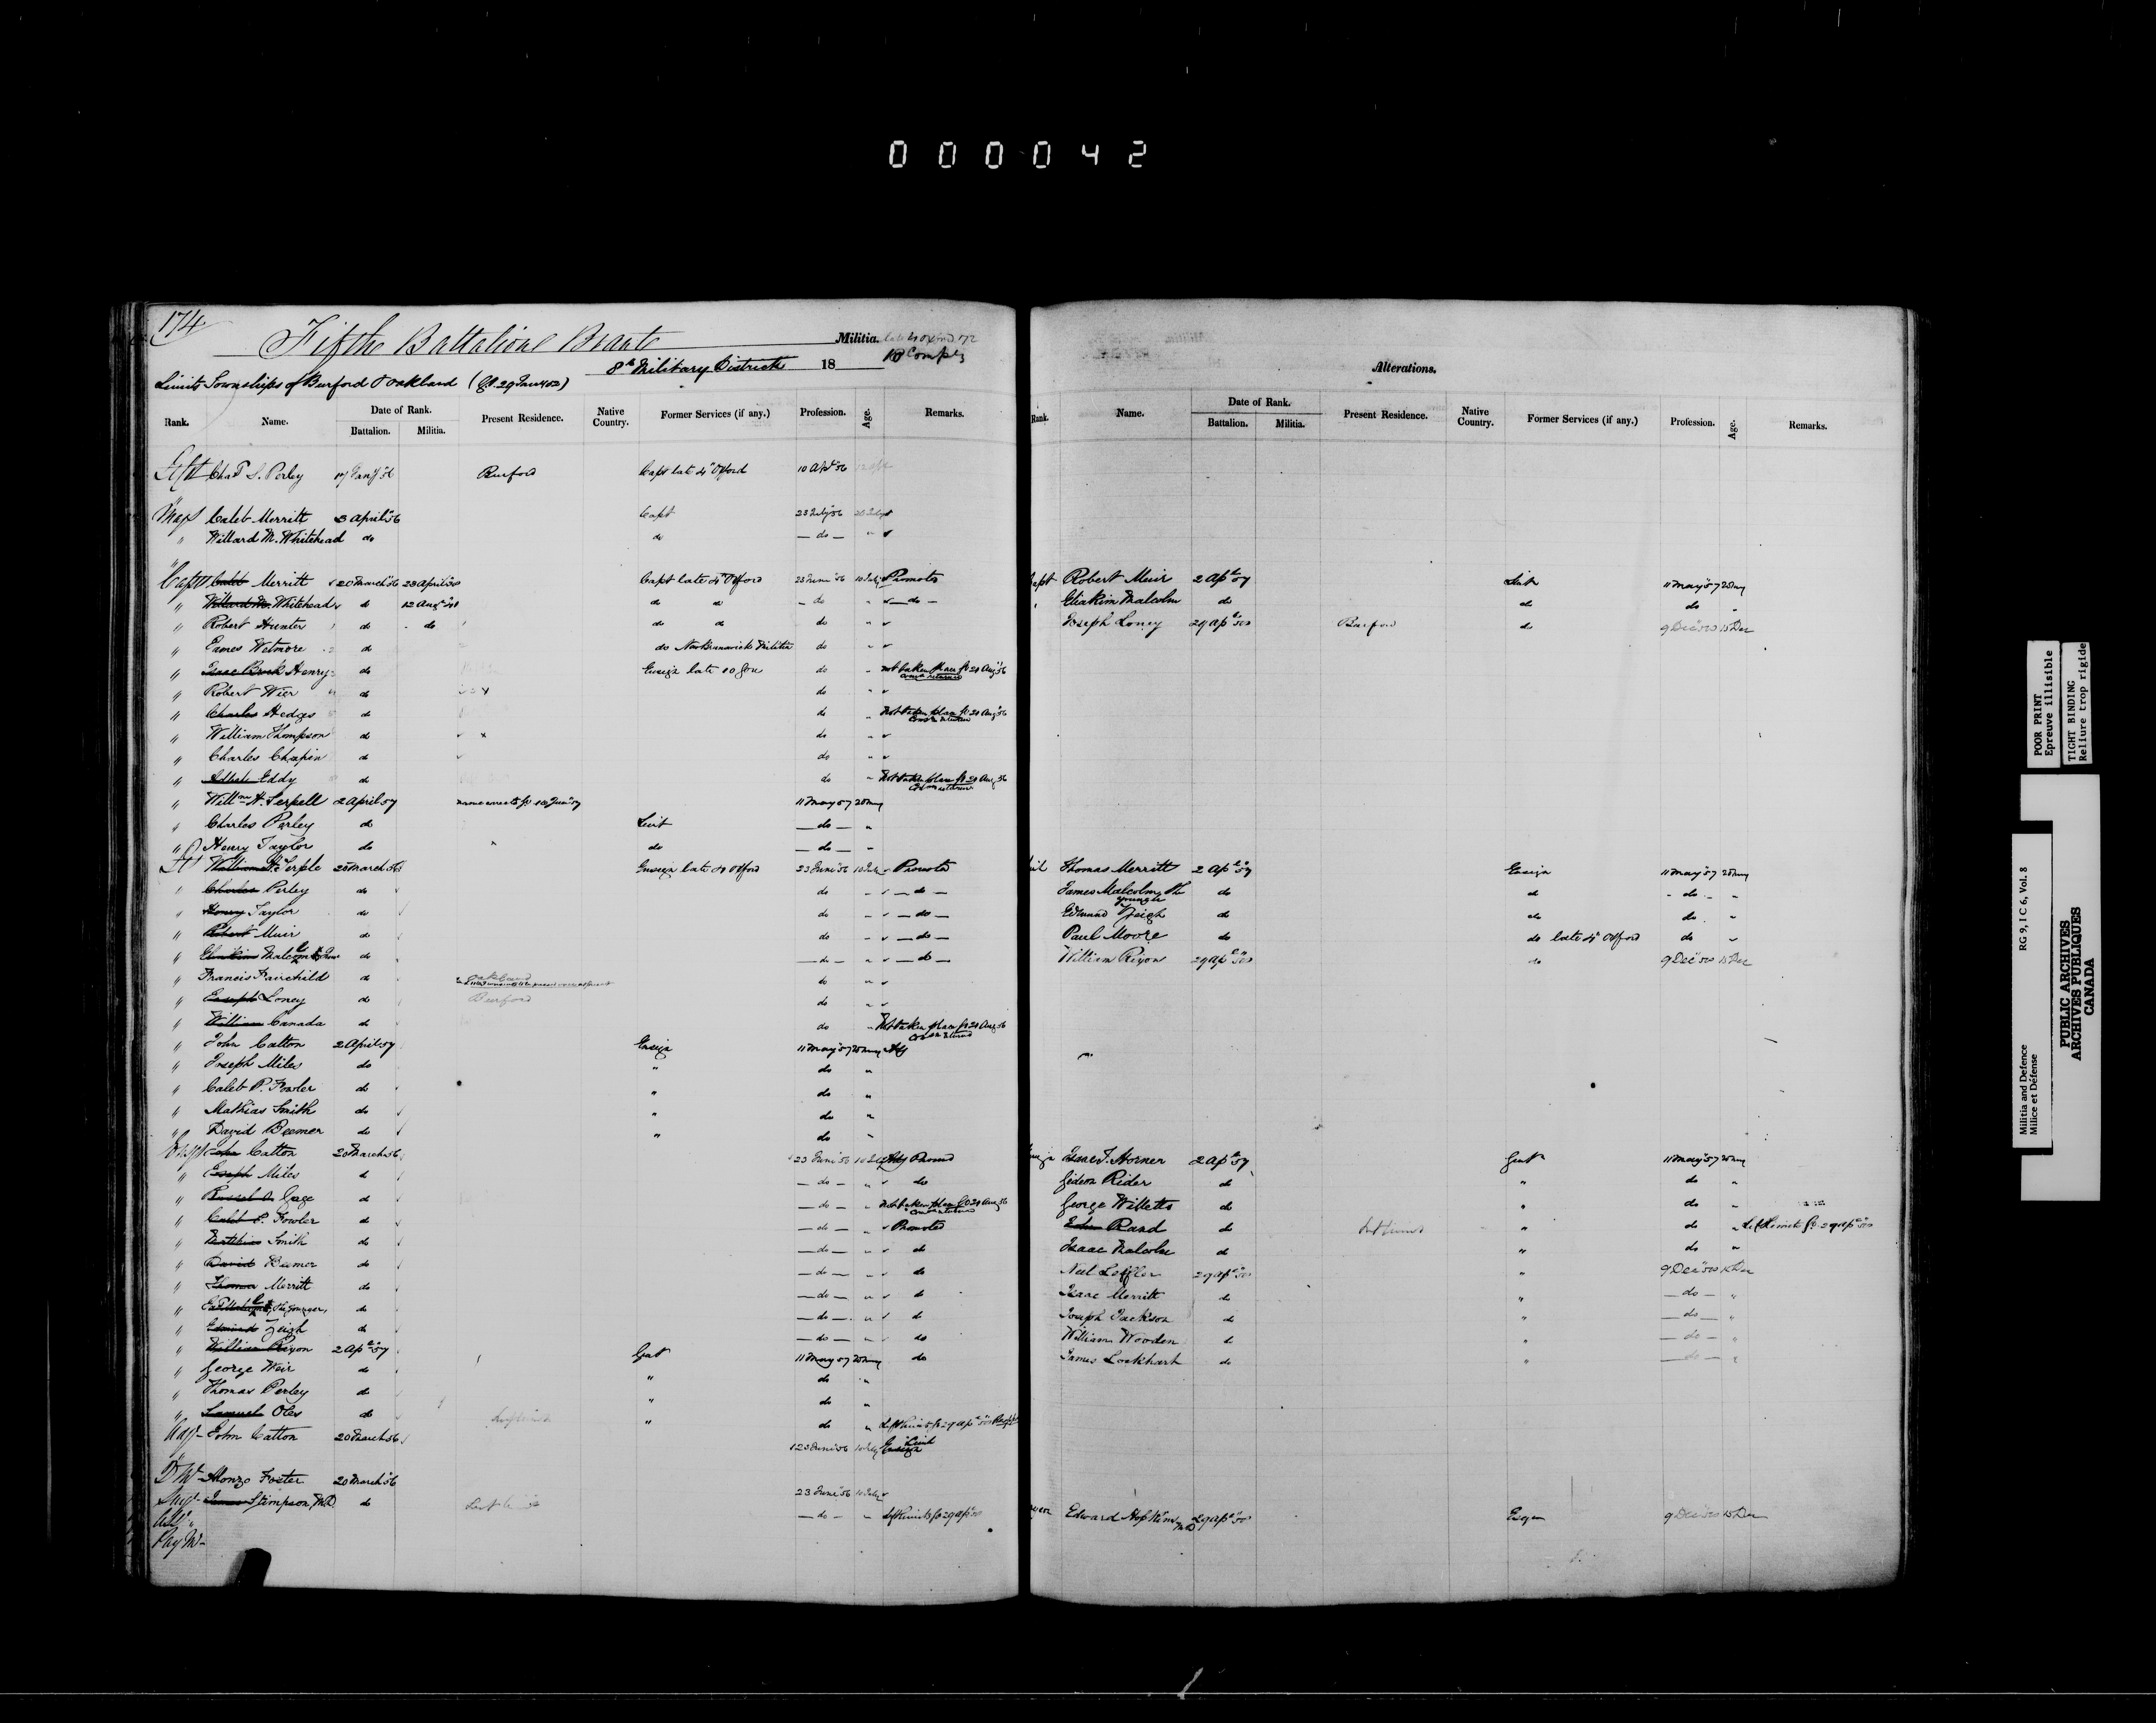 000042
174
Fifth Battalion Brant Militia. late 4 Oxford 172
8th Military District 18 10 Compys
Limits Townships of Burford & Oakland
Rank. Name. Date of Rank. Battalion. Militia. Present Residence. Native Country. Former Services (if any.) Profession. Age. Remarks.
Chas S. Perley Burford Capt late 4th Oxford 10 Apl 56
Maj Caleb Merritt 3 April 56 Capt 23 July 56
" Willard M. Whitehead do do do "
Capt Caleb Merritt 20 March 56 23 April Capt late 4th Oxford 23 June 56 10 July Promoted
" Willard M. Whitehead do 12 Aug do do do " do
" Robert Hunter do do do do do "
" James Wetmore do do New Brunswick Militia do "
" Isaac Brock Henry do Ensign late do " not taken place GO 20 Aug 56
" Robert Wier do do "
" Charles Hedges do do " Not taken place GO 20 Aug 56
" William Thompson do do "
" Charles Chapin do do "
" Eddy do do " Not taken place GO 20 Aug 56
" Willm H. Serpell 2 April 57 11 May 57 20 May
" Charles Perley do Lieut do "
" Henry Taylor do do do "
Lt William H. Serple 20 March 56 Ensign late 4 Oxford 23 June 56 10 July Promoted
" Charles Perley do do " do
" Henry Taylor do do " do
" Robert Muir do do " do
" Eliakim Malcolm do do " do
" Francis Fairchild do Oakland do "
" Joseph Loney do Burford do "
" William Canada do do " Not taken place GO 20 Aug 56
" John Catton 2 April 57 Ensign 11 May 57 20 May Adj
" Joseph Miles do " do "
" Caleb P. Fowler do " do "
" Mathias Smith do " do "
" David Beemer do " do "
Ensign John Catton 20 March 56 23 June 56 10 July Adj Promd
" Joseph Miles do do " do
" Russel Gage do do " Not taken place GO 20 Aug 56
" Caleb P. Fowler do do " Promoted
" Matthias Smith do do " do
" David Beemer do do " do
" Thomas Merritt do do " do
" Jas Malcolm, the younger, do do " do
" Edmund Zeigh do do " do
" William Rixon 2 Apl 57 Gent 11 May 57 20 May do
" George Weir do " do "
" Thomas Perley do " do "
" Samuel Oles do Left limits " do " Left limits GO 29 Apl 58
Adjt John Catton 20 March 56 23 June 56 10 July Ensign Lieut
Q M Alonzo Foster 20 March 56 23 June 56 10 July
Surgn James Stimpson, MD do Left limits do " left limits GO 29 Apl 58
Asst "
Pay M
Alterations.
Rank. Name. Date of Rank. Battalion. Militia. Present Residence. Native Country. Former Services (if any.) Profession. Age. Remarks.
Capt Robert Muir 2 Apl 57 Lieut 11 May 57 20 May
" Eliakim Malcolm do do do "
Joseph Loney 29 Apl 58 Burford do 9 Dec 58 15 Dec
Thomas Merritt 2 Apl 57 Ensign 11 May 57 20 May
James Malcolm, the younger do do do "
Edmund Zeigh do do do "
Paul Moore do do late 4th Oxford do "
William Rixon 29 Apl 58 do 9 Dec 58 15 Dec
Isaac J. Horner 2 Apl 57 Gent 11 May 57 20 May
Gideon Rider do " do "
George Willetts do " do "
John Rand do left limits " do " left limits GO 29 Apl 58
Isaac Malcolm do " do "
Neil Leffler 29 Apl 58 " 9 Dec 58 15 Dec
Isaac Merritt do " do "
Joseph Jackson do " do "
William Wooden do " do "
James Lockhart do " do "
Edward Hopkins, MD 29 Apl 58 9 Dec 58 15 Dec
POOR PRINT
Epreuve illisible
TIGHT BINDING
Reliure trop rigide
Militia and Defence RG 9, I C 6, Vol. 8
Milice et Défense
PUBLIC ARCHIVES
ARCHIVES PUBLIQUES
CANADA